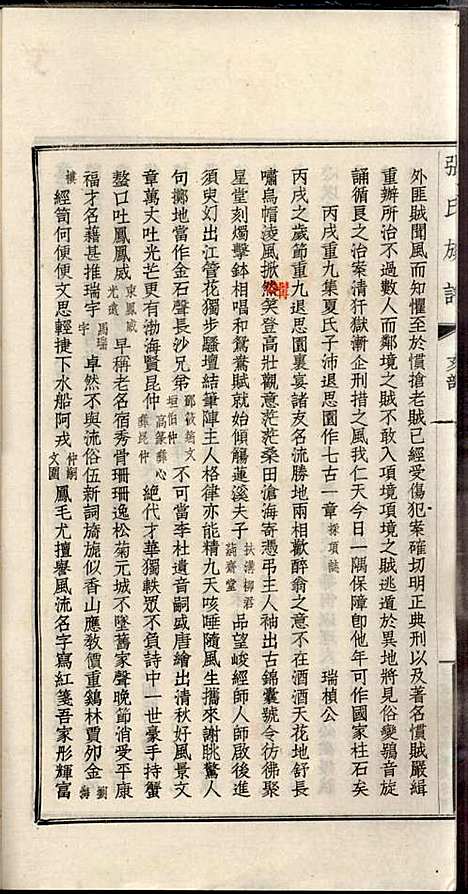 張氏族譜
文部
外匪賊聞風而知懼至於慣搶老賊已經受傷犯案確切明正典刑以及著名慣賊嚴緝
重辦所治不過數人而鄰境之賊不敢入項境項境之賊逃遁於異地將見俗變鴞音旋
誦循良之治案清犴獄漸企刑措之風我仁天今日一隅保障卽他年可作國家柱石矣
丙戌重九集夏氏子沛退思園作七古一章 採項誌 瑞楨公
丙戌之歲節重九退思園裏宴諸友名流勝地兩相歡醉翁之意不在酒酒天花地舒長
嘯烏帽淩風掀然笑登高壯觀意茫茫桑田滄海寄憑弔主人袖出古錦囊號令仿彿聚
星堂刻燭擊鉢相唱和鴛鴦賦就始傾觴蓮溪夫子 扶溝柳君 蒓齋堂 品望峻經師人師啟後進
須臾幻出江管花獨步騷壇結筆陣主人格律亦能精九天咳唾隨風生攜來謝眺驚人
句擲地當作金石聲長沙兄弟 鄧筱赬文 垣伯仲 不可當李杜遺音嗣盛唐繪出清秋好風景文
章萬丈吐光芒更有渤海賢昆仲 高篆蘇心 蘇昆仲 絕代才華獨軼眾不負詩中一世豪手持蟹
螯口吐鳳鳳威 東鳳威 光遠 早稱老名宿秀骨珊珊逸松菊元城不墜舊家聲晚節消受平康
福才名藉甚推瑞宇 馬瑞 宇 卓然不與流俗伍新詞旖旎似香山應教價重鷄林賈夘金 劉 海
樓 經笥何便便文思輕捷下水船阿戎 仲嗣 文圃 鳳毛尤擅譽風流名字寫紅箋吾家彤輝富